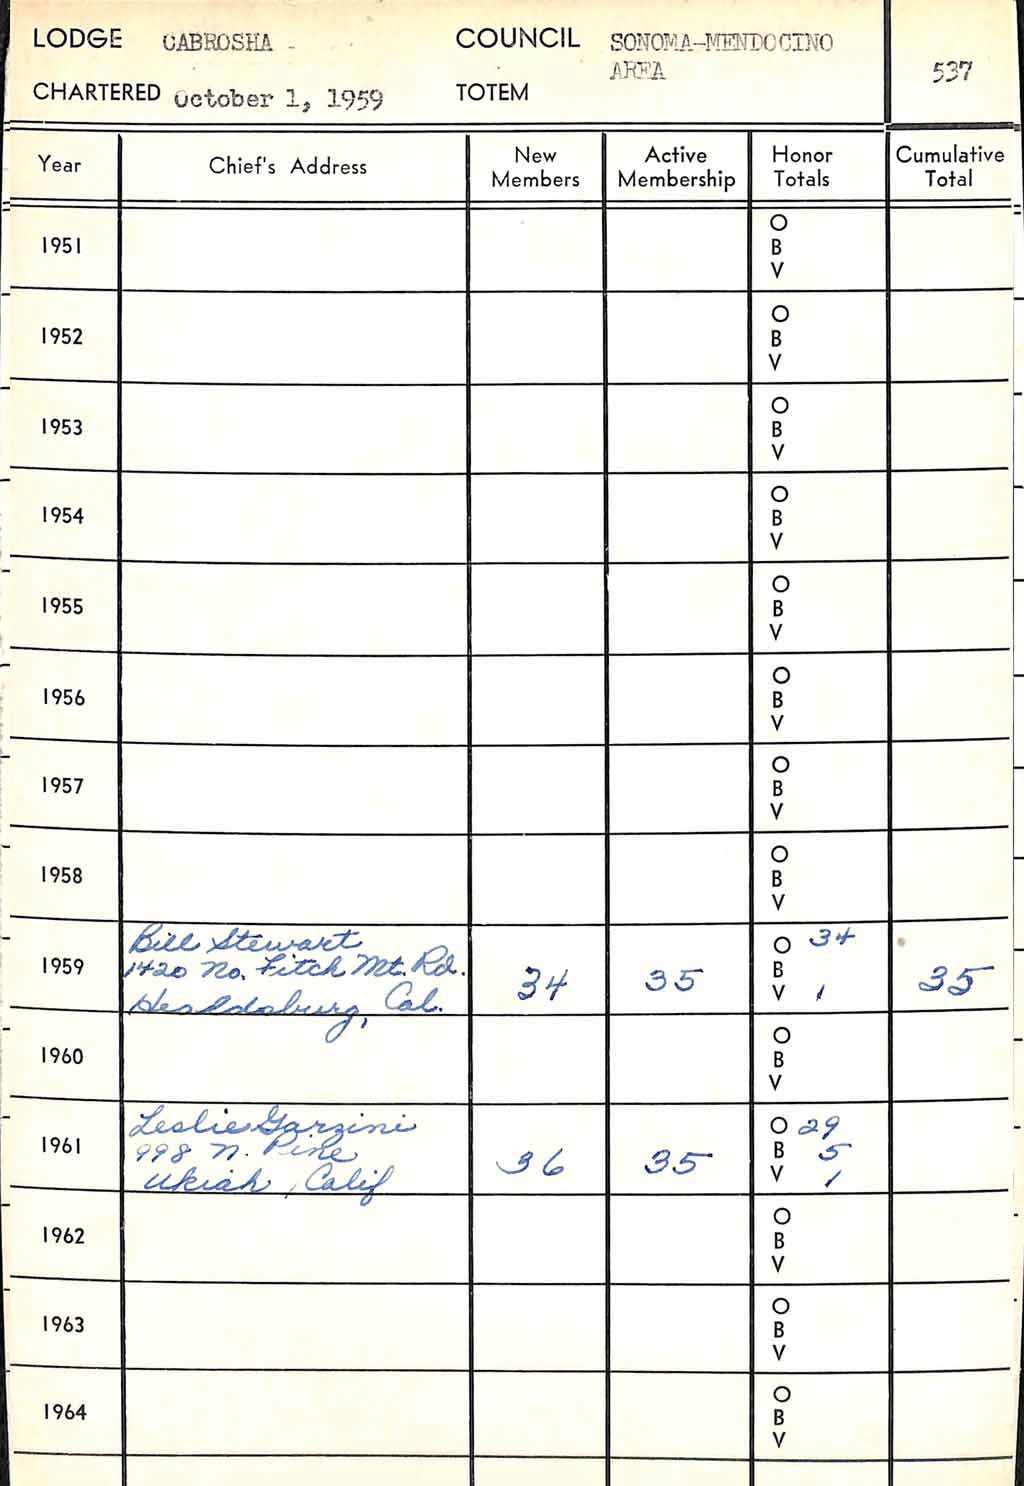 LODGE CABROSHA - COUNCIL SONOMA-MENDOCINO
AREA 537
CHARTERED October 1, 1959 TOTEM
Year Chief's Address New Members Active Membership Honor Totals Cumulative Total
O
1951 B
V
O
1952 B
V
O
1953 B
V
O
1954 B
V
O
1955 B
V
O
1956 B
V
O
1957 B
V
O
1958 B
V
Bill Stewart O 34
1959 1420 No. Fitch Mt. Rd. 34 35 B 35
Healdsburg, Cal. V 1
O
1960 B
V
Leslie Garzini O 29
1961 998 N. Pine 36 35 B 5
Ukiah, Calif V 1
O
1962 B
V
O
1963 B
V
O
1964 B
V